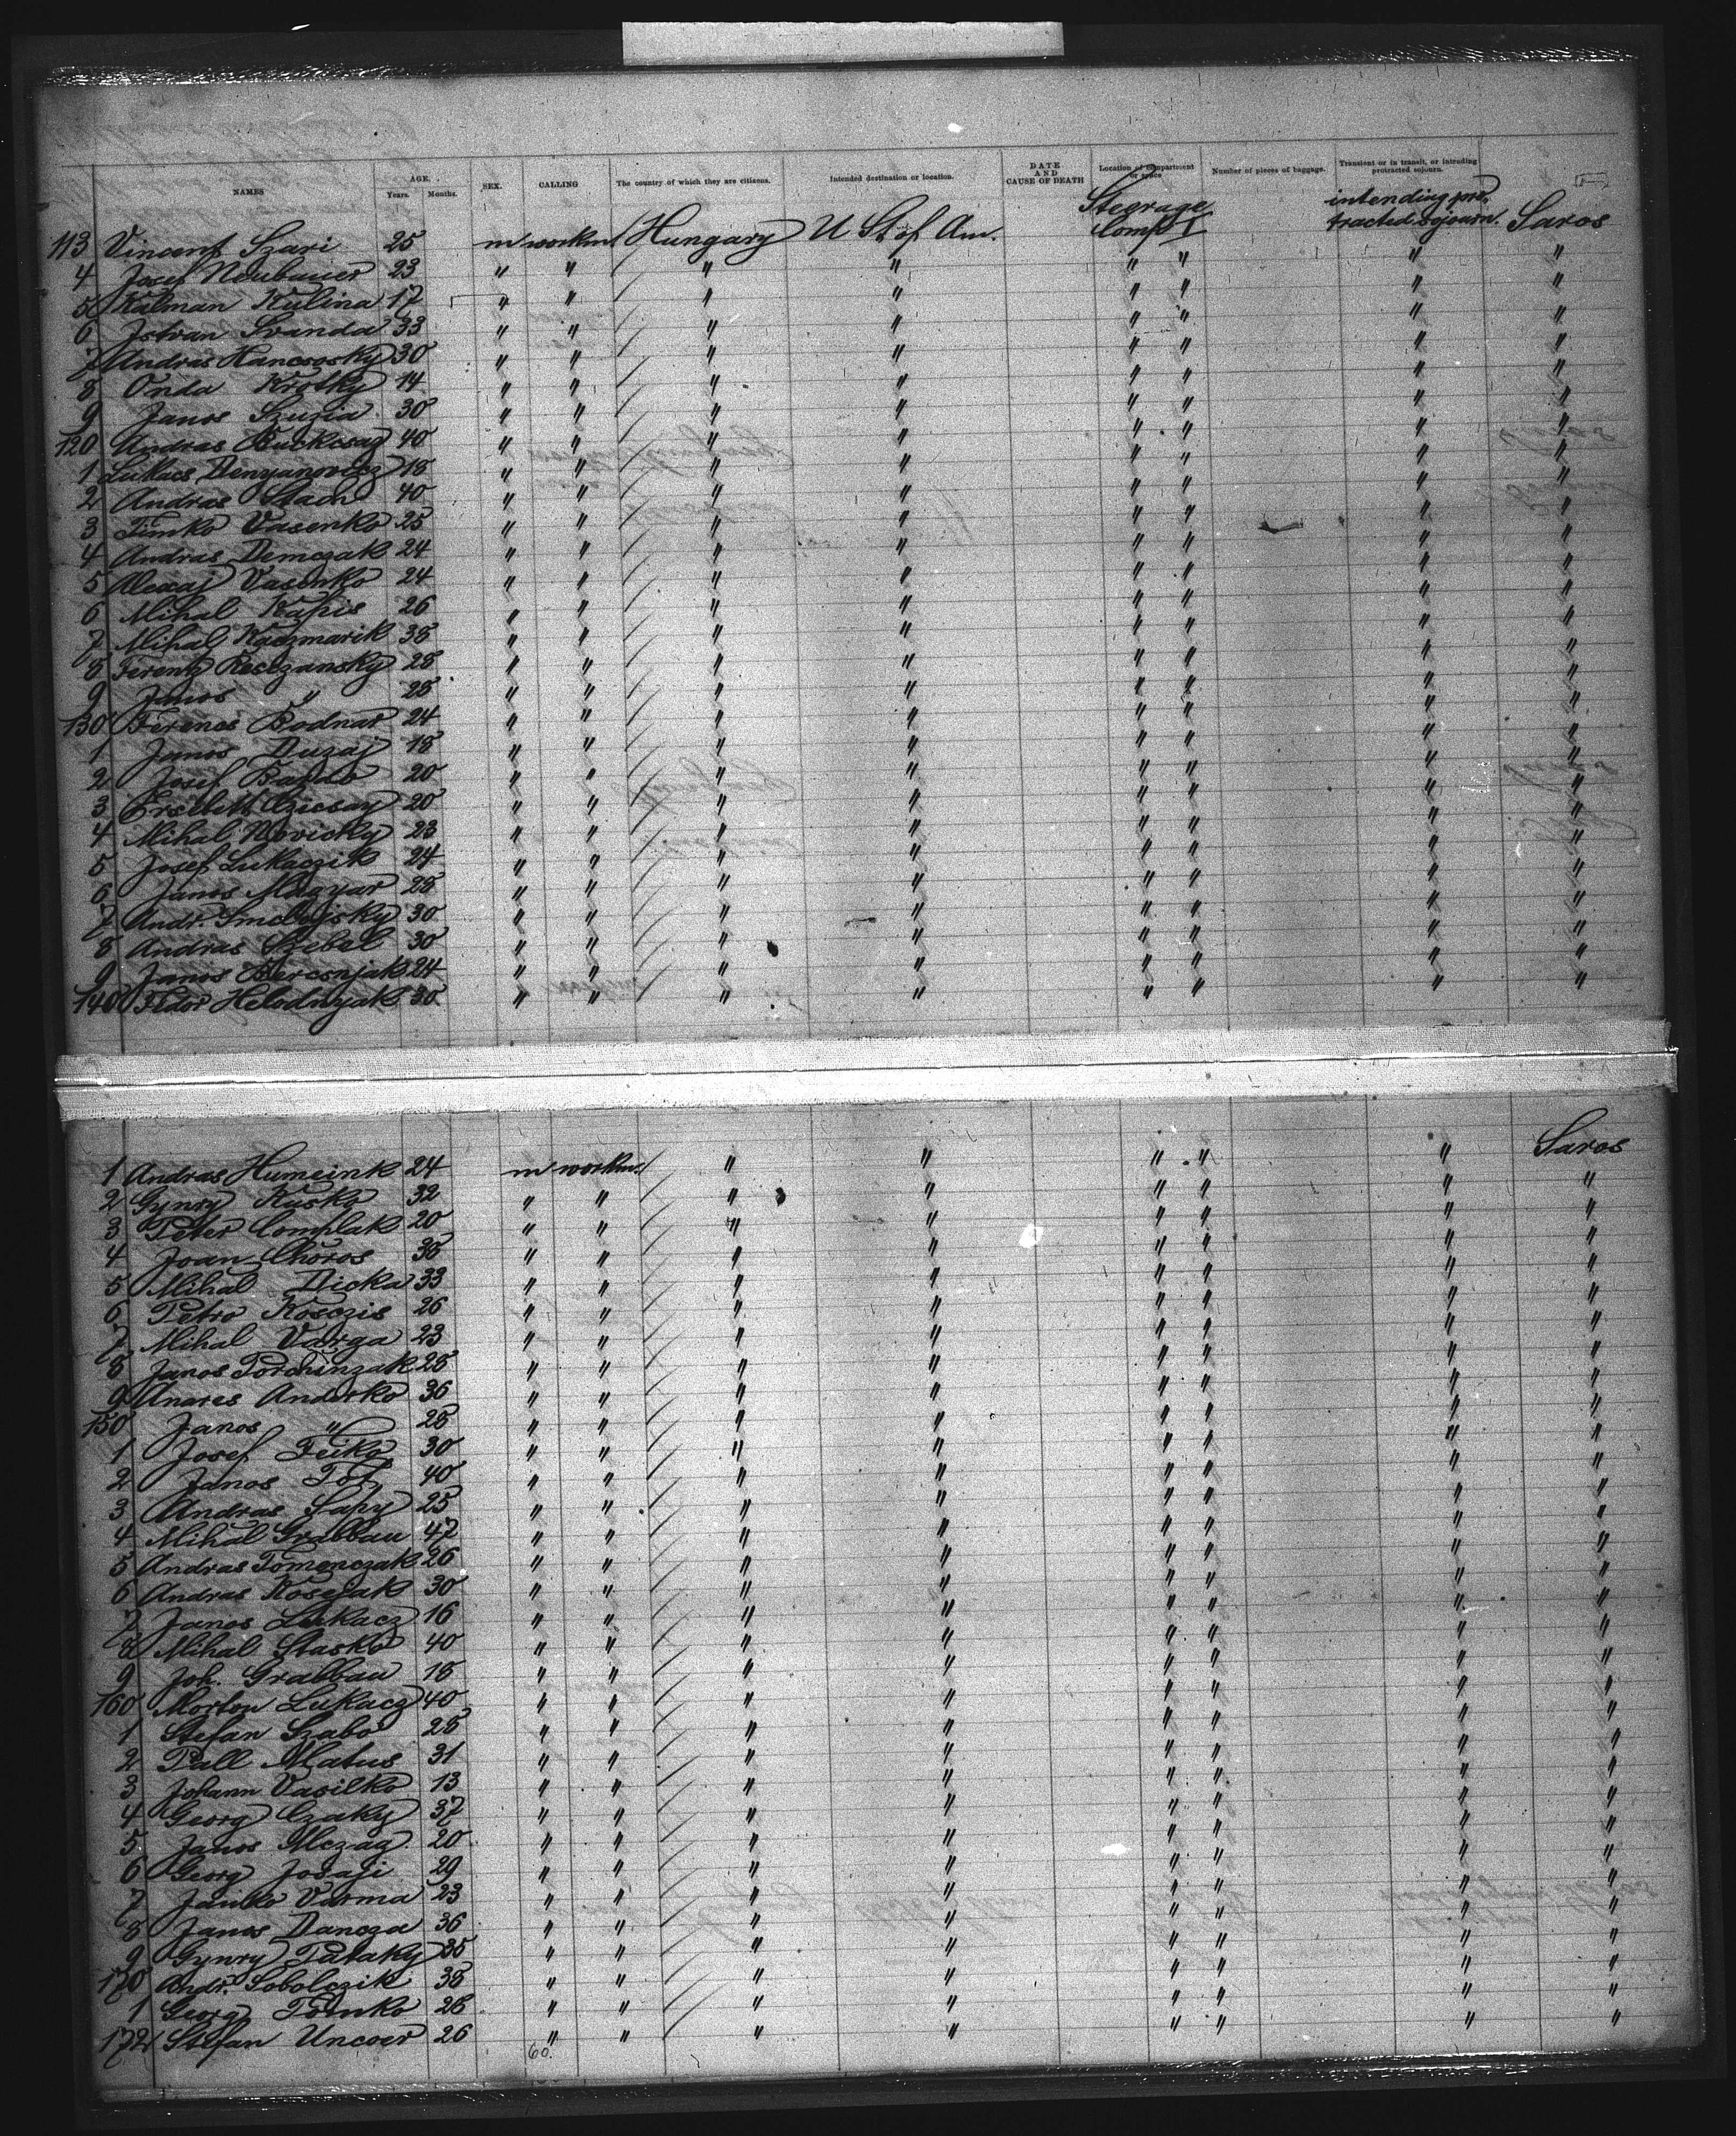 NAMES AGE. Years. Months. SEX. CALLING The country of which they are citizens. Intended destination or location. DATE AND CAUSE OF DEATH Location of compartment or space Number of pieces of baggage. Transient or in transit, or intending protracted sojourn.
113 Vincent Szari 25 m workm Hungary U St of Am. Steerage Comp I intending protracted sojourn. Saros
4 Josef Neubauer 23 " " " " " " " "
5 Kalman Kulina 17 " " " " " " " "
6 Istvan Svanda 33 " " " " " " " "
7 Andras Hancsosky 30 " " " " " " " "
8 Onda Krotky 14 " " " " " " " "
9 Janos Szuzia 30 " " " " " " " "
120 Andras 40 " " " " " " " "
1 Lukacs Demyanovicz 18 " " " " " " " "
2 Andras Stach 40 " " " " " " " "
3 Timko Vasenko 25 " " " " " " " "
4 Andras Demczak 24 " " " " " " " "
5 Alexaj Vasenko 24 " " " " " " " "
6 Mihal Kapis 26 " " " " " " " "
7 Mihal Kaczmarik 38 " " " " " " " "
8 Ferentz Resczansky 28 " " " " " " " "
9 Janos " 28 " " " " " " " "
130 Ferencs Bodnar 24 " " " " " " " "
1 Janos Duzaj 18 " " " " " " " "
2 Josef 20 " " " " " " " "
3 20 " " " " " " " "
4 Mihal Novicky 23 " " " " " " " "
5 Josef Lukaczik 24 " " " " " " " "
6 Janos Magyar 28 " " " " " " " "
7 Andr. 30 " " " " " " " "
8 Andras Szebel 30 " " " " " " " "
9 Janos Bercsnjak 24 " " " " " " " "
140 Fedor Helodnyak 30 " " " " " " " "
1 Andras Humeink 24 m workm. " " " " " Saros
2 Gynry Kusko 32 " " " " " " " "
3 Peter Complak 20 " " " " " " " "
4 Joan Choros 38 " " " " " " " "
5 Mihal Dicka 33 " " " " " " " "
6 Petro Kosczis 26 " " " " " " " "
7 Mihal Varga 23 " " " " " " " "
8 Janos Porchinzak 28 " " " " " " " "
9 Anares Anderko 36 " " " " " " " "
150 Janos " 28 " " " " " " " "
1 Josef Feiko 30 " " " " " " " "
2 Janos Tot 40 " " " " " " " "
3 Andras Sapy 25 " " " " " " " "
4 Mihal Grabbau 47 " " " " " " " "
5 Andras Tomenczak 26 " " " " " " " "
6 Andras Koscsak 30 " " " " " " " "
7 Janos Lukacz 16 " " " " " " " "
8 Mihal Stasko 40 " " " " " " " "
9 Joh. Grabbau 18 " " " " " " " "
160 Morton Lukacz 40 " " " " " " " "
1 Stefan Szabo 28 " " " " " " " "
2 Pall Matus 31 " " " " " " " "
3 Johann Vasilko 13 " " " " " " " "
4 Georg Czaky 37 " " " " " " " "
5 Janos Mczag 20 " " " " " " " "
6 Georg Josaji 29 " " " " " " " "
7 Janko Varma 23 " " " " " " " "
8 Janos Dancza 36 " " " " " " " "
9 Gynry Pataky 35 " " " " " " " "
170 Andr. Sobolczik 38 " " " " " " " "
1 Georg Tomko 28 " " " " " " " "
172 Stefan Uncoer 26 " " " " " " " "
60.